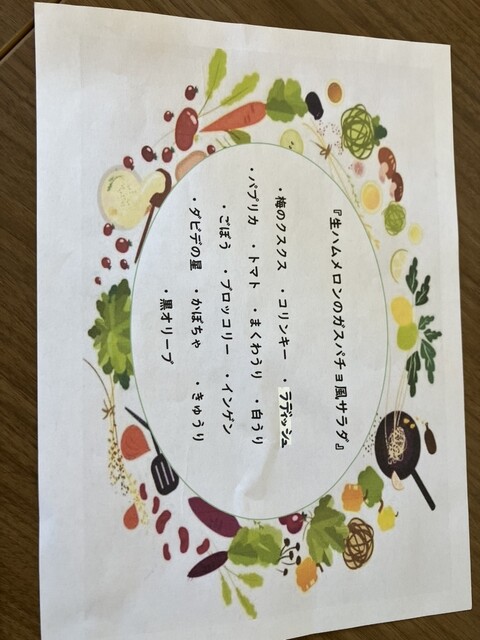 『生ハムメロンのガスパチョ風サラダ』
・梅のクスクス ・コリンキー ・ラディッシュ
・パプリカ ・トマト ・まくわうり ・白うり
・ごぼう ・ブロッコリー ・インゲン
・ダビデの星 ・かぼちゃ ・きゅうり
・黒オリーブ